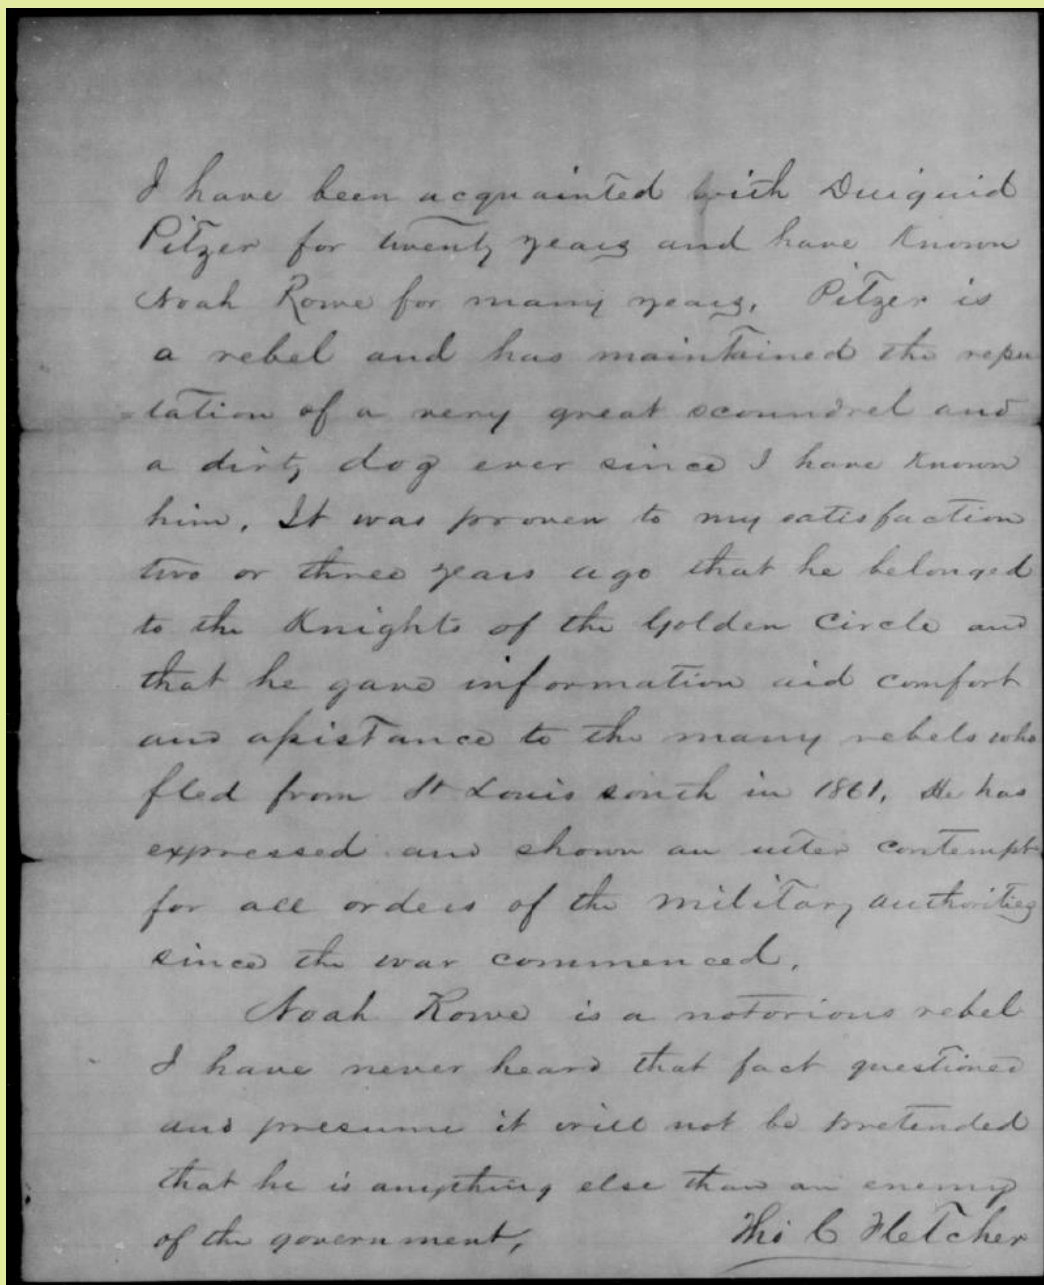 I have been acquainted with Duiguid
Pitzer for twenty years and have Known
Noah Rowe for many years, Pitzer is
a rebel and has maintained the repu
tation of a very great scoundrel and
a dirty dog ever since I have Known
him. It was proven to my satisfaction
two or three years ago that he belonged
to the Knights of the Golden Circle and
that he gave information aid comfort
and assistance to the many rebels who
fled from St Louis south in 1861. He has
expressed and shown an utter contempt
for all orders of the military authorities
since the war commenced.
Noah Rowe is a notorious rebel
I have never heard that fact questioned
and presume it will not be pretended
that he is anything else than an enemy
of the government,
Tho C Fletcher